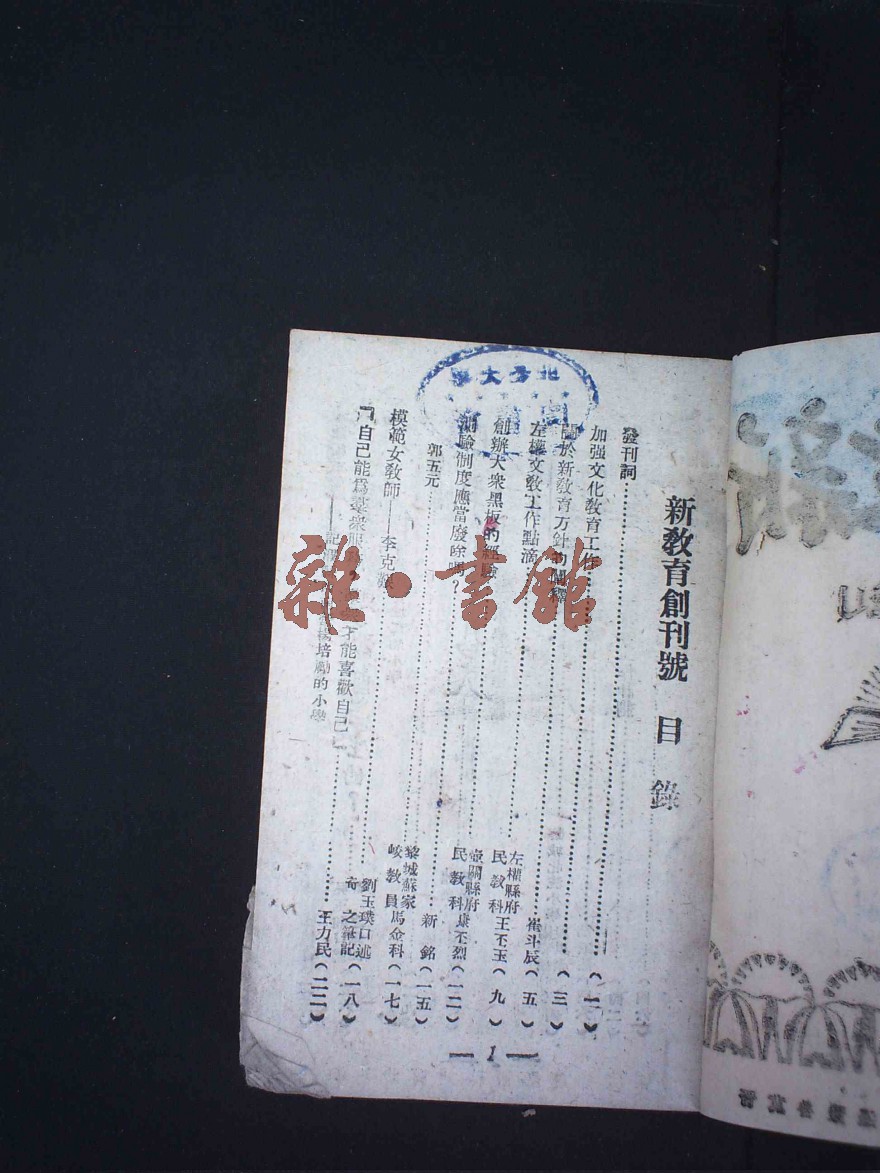 新教育創刊號 目錄
發刊詞
加强文化教育工作 (一)
關於新教育方針的 (三)
左權文敎工作點滴 崔斗辰 (五)
創辦大衆黑板的經驗 左權縣府民教科 王丕玉 (九)
測驗制度應當廢除嗎? 壺關縣府民教科 康丕烈 (一二)
郭五元 新銘 (一五)
模範女敎師——李克 黎城蘇家峧教員 馬金科 (一七)
「自己能爲羣衆服 才能喜歡自己」 劉玉璞口述 奇之筆記 (一八)
培勵的小學 王力民 (二二)
— 1 —
北方大學
雜·書館